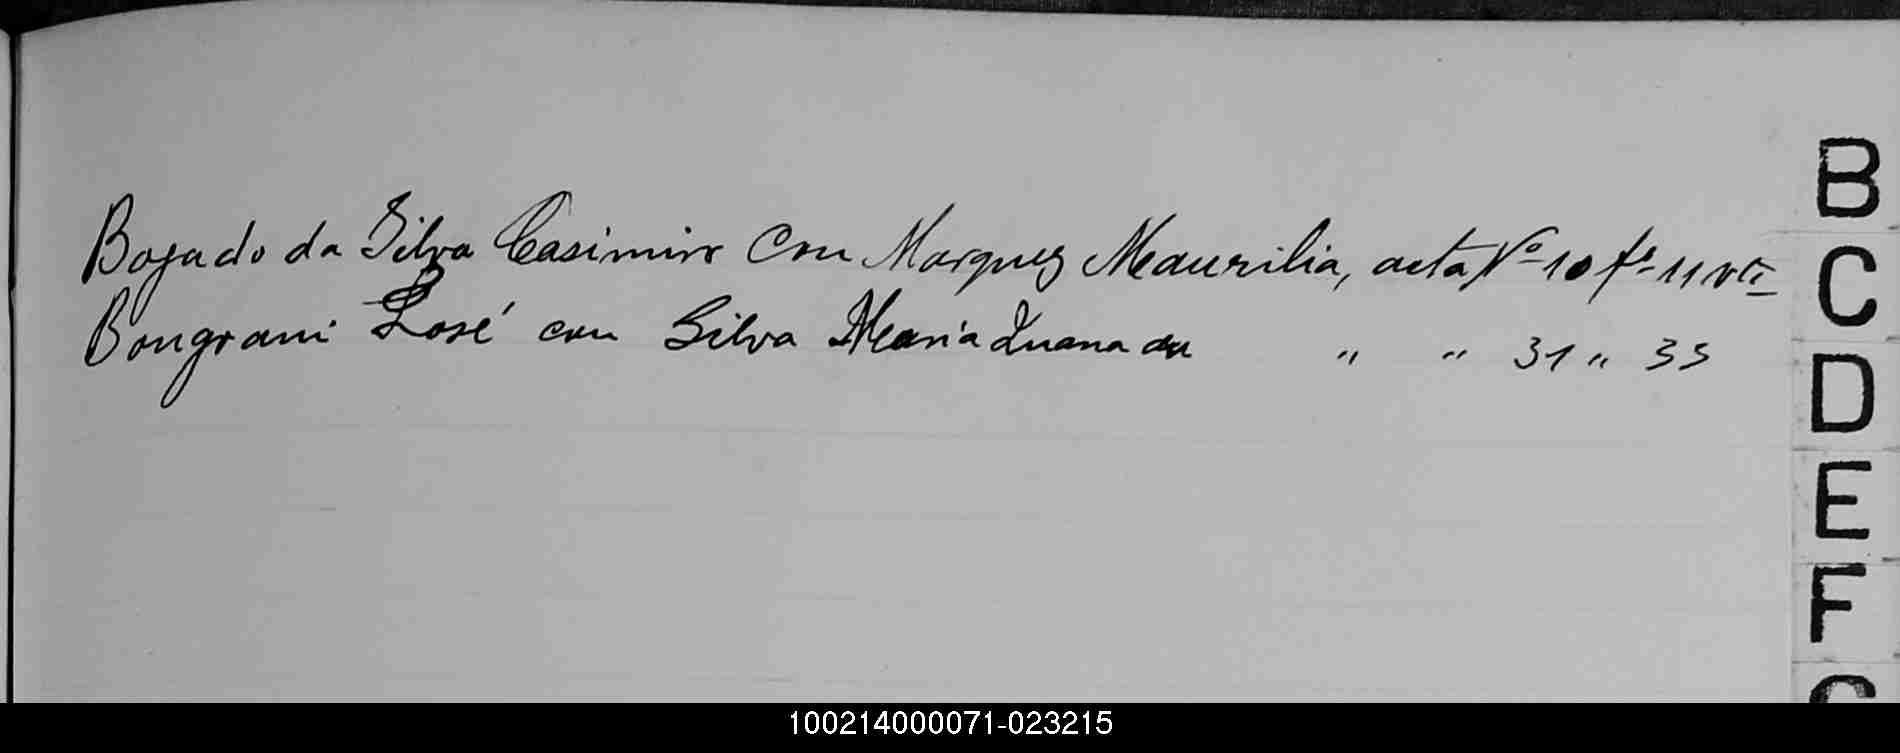 Bogado da Silva Casimiro con Marquez Maurilia, acta Nº 10 fº 11 vta
Bongrani José con Silva Maria Juana da " " 31 " 33
B
C
D
E
F
G
100214000071-023215